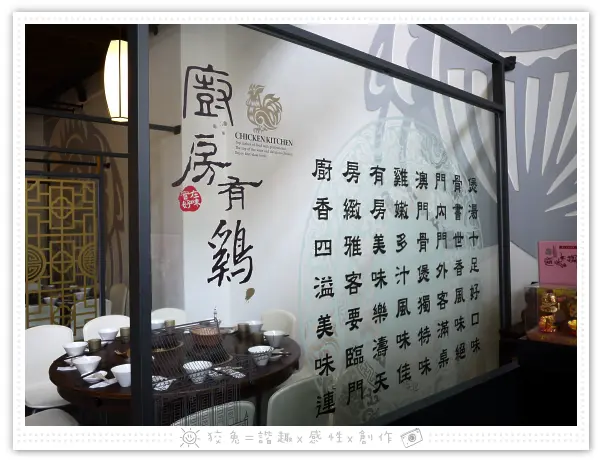 廚房有鷄
CHICKEN KITCHEN
廚香四溢美味連
房緻雅客要臨門
有房美味樂濤天
雞嫩多汁風味佳
澳門骨煲獨特味
門內門外客滿桌
骨書世香風味絕
煲湯十足好口味
狡兔=諧趣x感性x創作